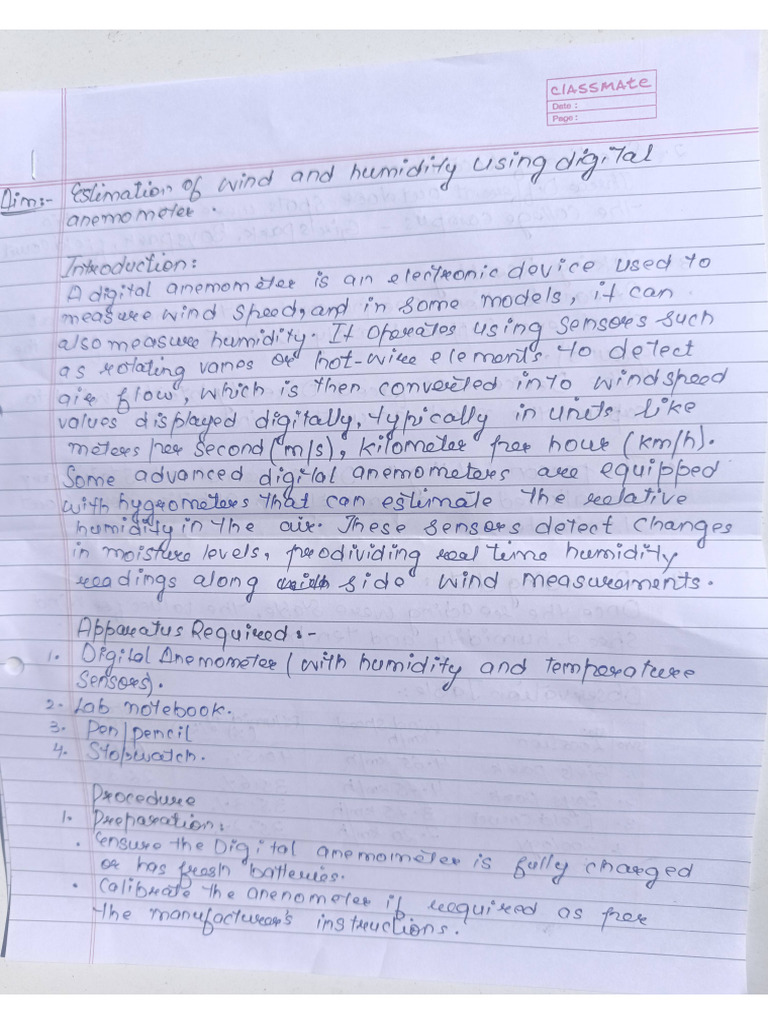 CLASSMATE
Date :
Page :
Aim:- Estimation of wind and humidity using digital
anemometer.
Introduction:
A digital anemometer is an electronic device used to
measure wind speed, and in some models, it can
also measure humidity. It operates using sensors such
as rotating vanes or hot-wire elements to detect
air flow, which is then converted into windspeed
values displayed digitally, typically in units like
meters per second (m/s), kilometer per hour (km/h).
Some advanced digital anemometers are equipped
with hygrometers that can estimate the relative
humidity in the air. These sensors detect changes
in moisture levels, prodividing real time humidity
readings along side wind measurements.
Apparatus Required :-
1. Digital Anemometer (with humidity and temperature
sensors).
2. Lab notebook.
3. Pen/pencil
4. Stopwatch.
Procedure
1. Preparation:
• Ensure the Digital anemometer is fully charged
or has fresh batteries.
• Calibrate the anenometer if required as per
the manufacturer's instructions.